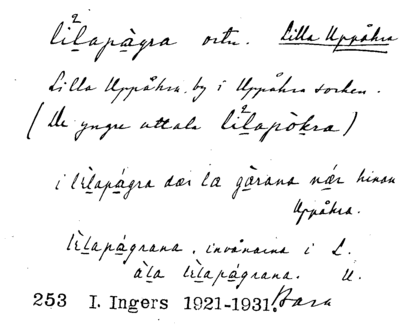 lìlapàgra ortn. Lilla Uppåkra
Lilla Uppåkra, by i Uppåkra socken.
(De yngre uttala lìlapòkra)
i lèlapàgra dær la gårana nær hinan
Uppåkra.
lèlapàgrana, invånarna i L.
àla lèlapàgrana. U.
253 I. Ingers 1921-1931. Bara